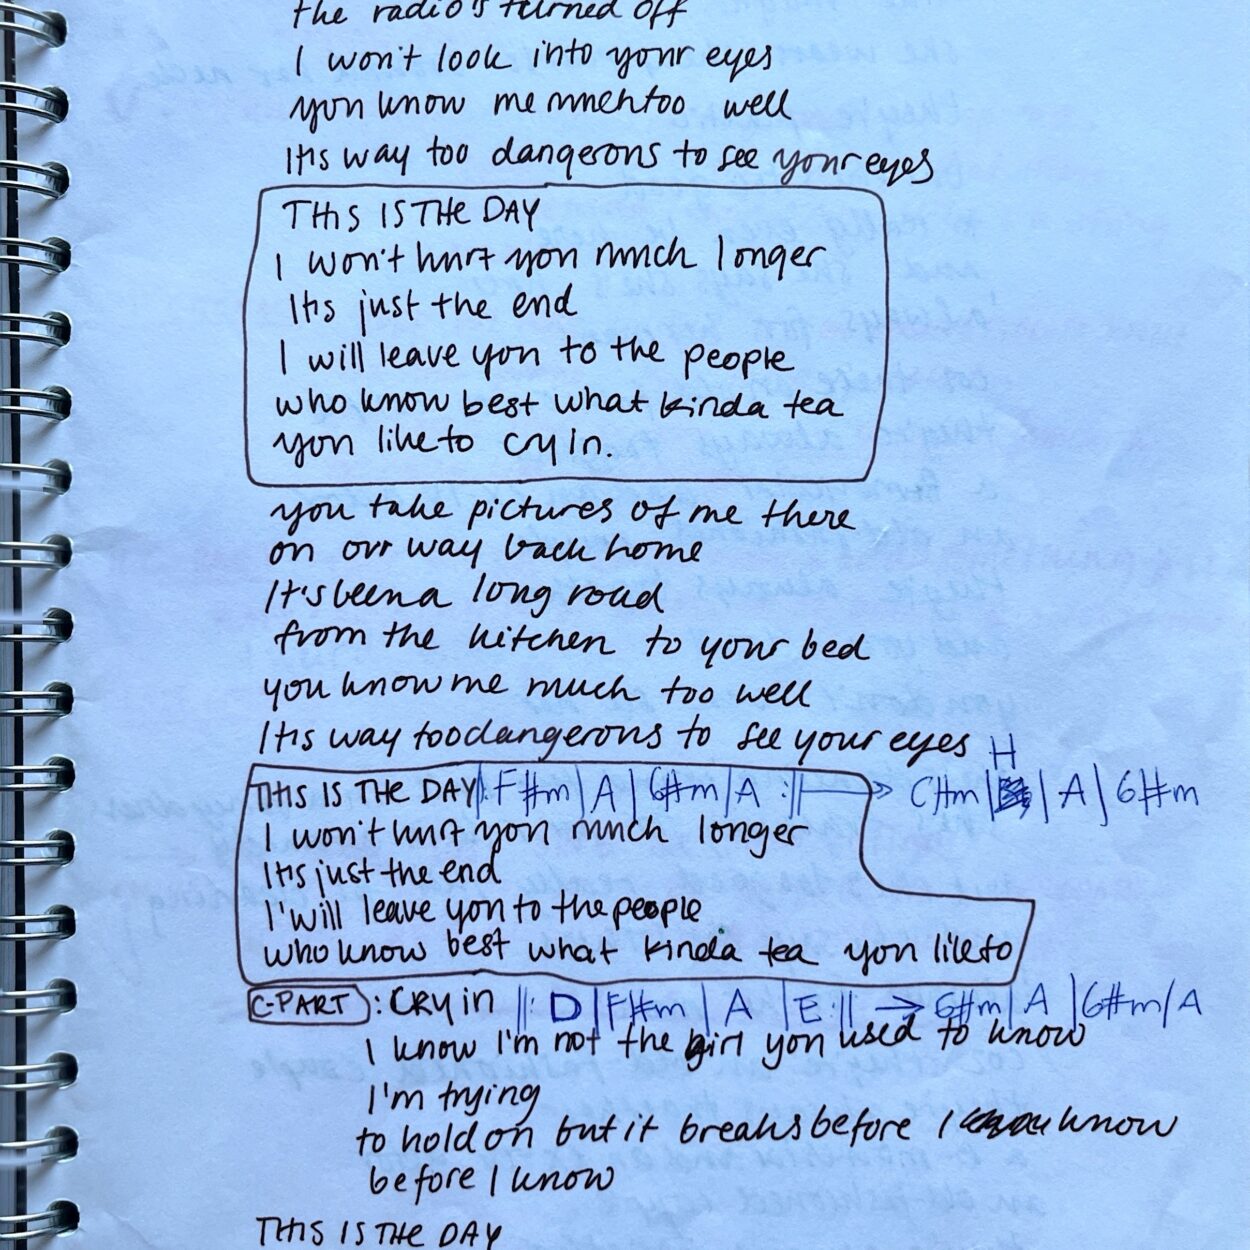 the radio's turned off
I won't look into your eyes
you know me much too well
It's way too dangerous to see your eyes
THIS IS THE DAY
I won't hurt you much longer
It's just the end
I will leave you to the people
who know best what kinda tea
you like to cry in.
you take pictures of me there
on our way back home
It's been a long road
from the kitchen to your bed
you know me much too well
It's way too dangerous to see your eyes
H
THIS IS THE DAY |: F#m | A | G#m | A :|| → C#m | | A | G#m
I won't hurt you much longer
It's just the end
I will leave you to the people
who know best what kinda tea you like to
C-PART : cry in ||: D | F#m | A | E :|| → G#m | A | G#m | A
I know I'm not the girl you used to know
I'm trying
to hold on but it breaks before I know
before I know
THIS IS THE DAY